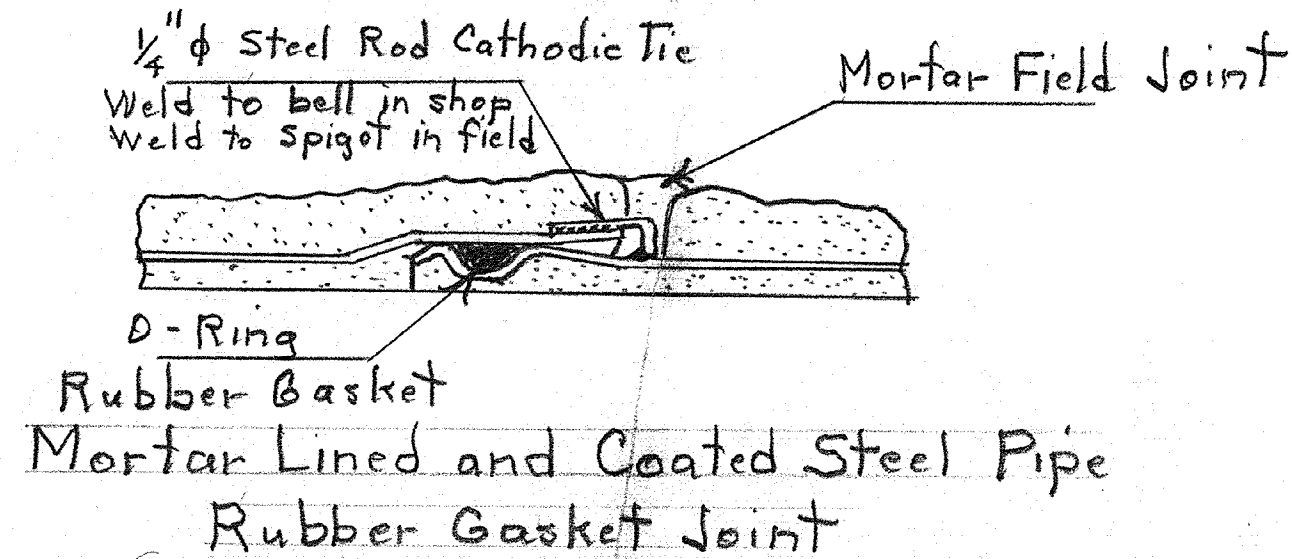 1/4"ϕ Steel Rod Cathodic Tie
Weld to bell in shop
Weld to spigot in field
Mortar Field Joint
O-Ring
Rubber Gasket
Mortar Lined and Coated Steel Pipe
Rubber Gasket Joint